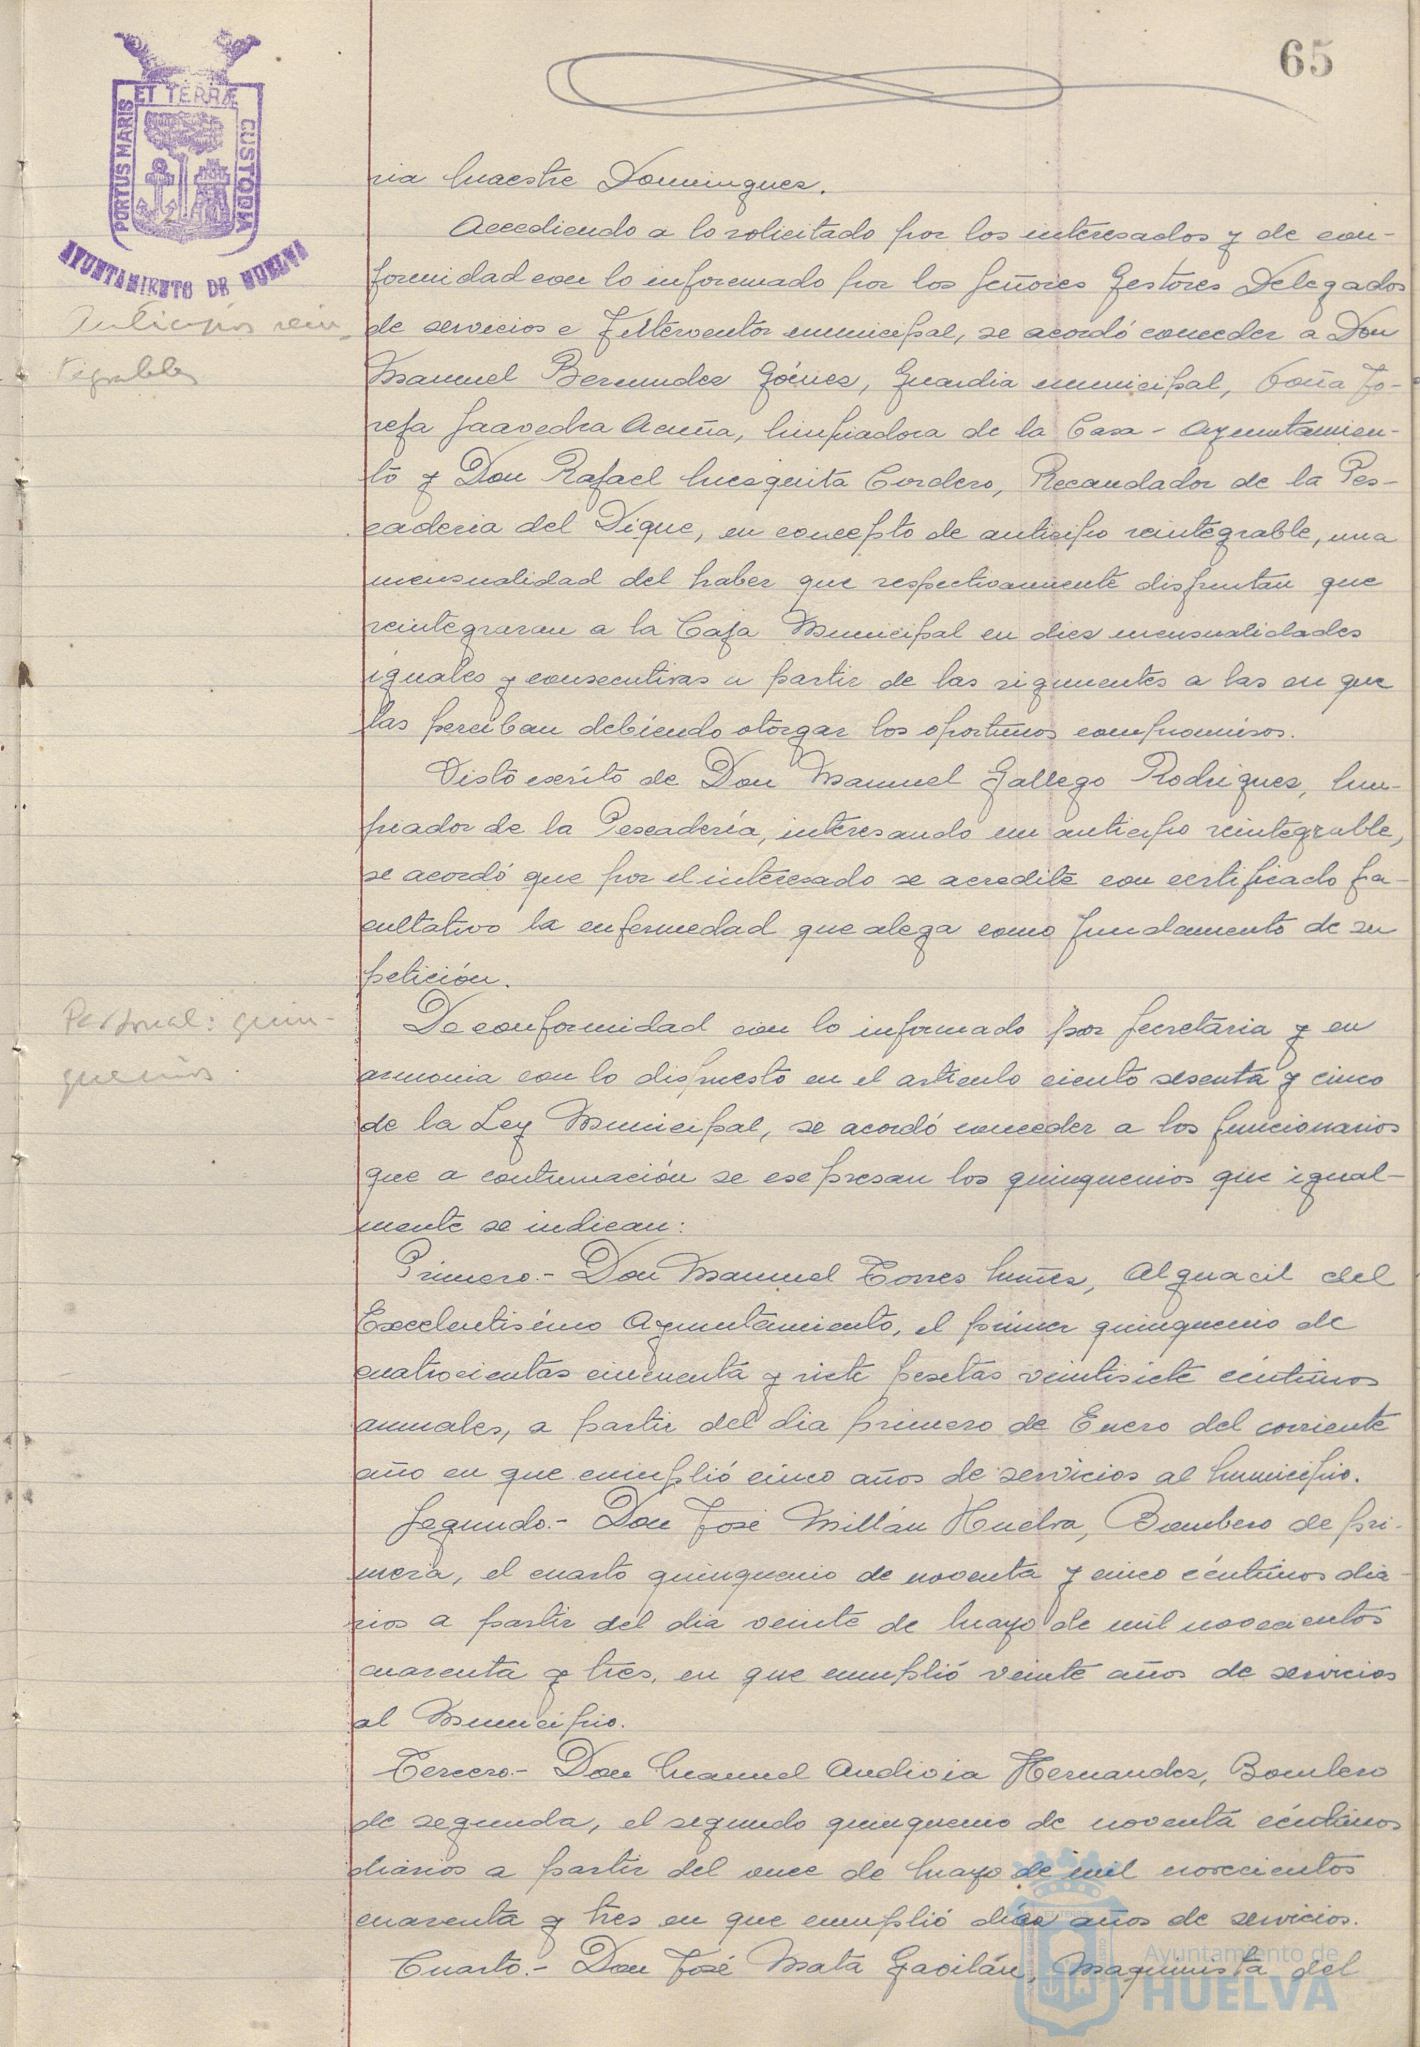 65
PORTUS MARIS ET TERRÆ CUSTODIA
AYUNTAMIENTO DE HUELVA
ria Maestre Dominguez.
Accediendo a lo solicitado por los interesados y de con-
formidad con lo informado por los Señores Gestores Delegados
Anticipos rein-
de servicios e Interventor municipal, se acordó conceder a Don
tegrables
Manuel Bermudez Gómez, Guardia municipal, Doña Jo-
sefa Saavedra Acuña, limpiadora de la Casa-Ayuntamien-
to y Don Rafael Mezquita Cordero, Recaudador de la Pes-
caderia del Dique, en concepto de anticipo reintegrable, una
mensualidad del haber que respectivamente disfrutan que
reintegraran a la Caja Municipal en diez mensualidades
iguales y consecutivas a partir de las siguientes a las en que
las perciban debiendo otorgar los oportunos compromisos.
Visto escrito de Don Manuel Gallego Rodriguez, lim-
piador de la Pescadería, interesando un anticipo reintegrable,
se acordó que por el interesado se acredite con certificado fa-
cultativo la enfermedad que alega como fundamento de su
petición.
Personal: quin-
quenios.
De conformidad con lo informado por Secretaria y en
armonia con lo dispuesto en el articulo ciento sesenta y cinco
de la Ley Municipal, se acordó conceder a los funcionarios
que a continuación se expresan los quinquenios que igual-
mente se indican:
Primero.- Don Manuel Torres Muñez, Alguacil del
Excelentisimo Ayuntamiento, el primer quinquenio de
cuatrocientas cincuenta y siete pesetas veintisiete céntimos
anuales, a partir del dia primero de Enero del corriente
año en que cumplió cinco años de servicios al Municipio.
Segundo.- Don José Millán Huelva, Bombero de pri-
mera, el cuarto quinquenio de noventa y cinco céntimos dia-
rios a partir del dia veinte de Mayo de mil novecientos
cuarenta y tres, en que cumplió veinte años de servicios
al Municipio.
Tercero.- Don Manuel Andivia Hernandez, Bombero
de segunda, el segundo quinquenio de noventa céntimos
diarios a partir del once de Mayo de mil novecientos
cuarenta y tres en que cumplió diez años de servicios.
Cuarto.- Don José Mata Gavilán, Maquinista del
Ayuntamiento de
HUELVA